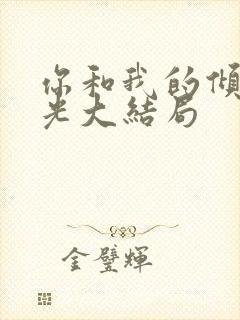 你和我的傾
光大結局
金璧輝